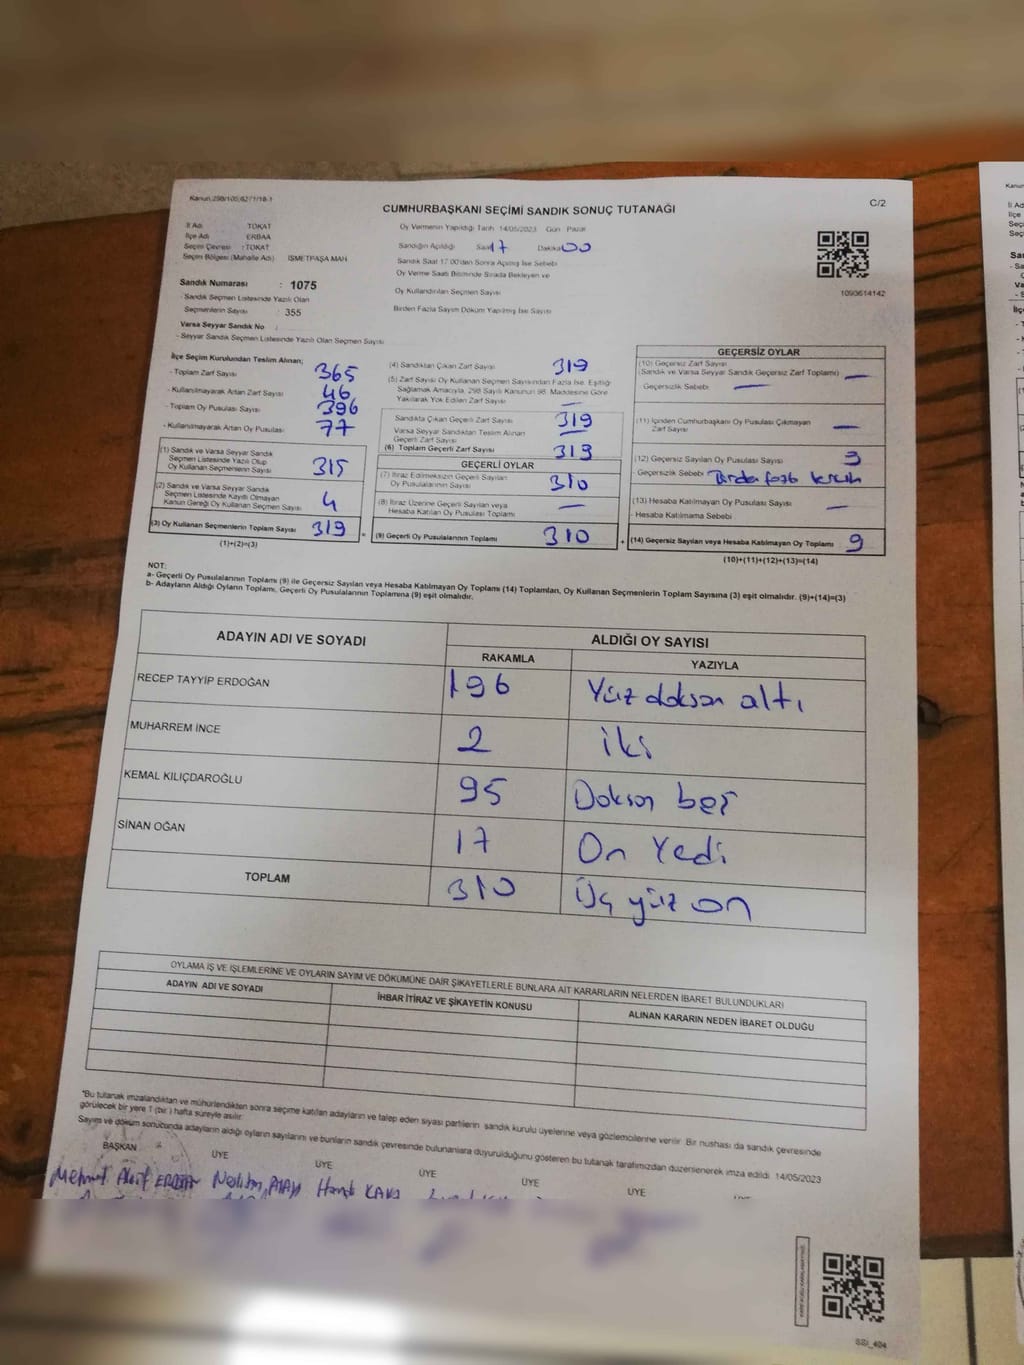 Kanun:298/105;6271/18-1
C/2
CUMHURBAŞKANI SEÇİMİ SANDIK SONUÇ TUTANAĞI
İl Adı : TOKAT
İlçe Adı : ERBAA
Seçim Çevresi : TOKAT
Seçim Bölgesi (Mahalle Adı) : İSMETPAŞA MAH
Sandık Numarası : 1075
- Sandık Seçmen Listesinde Yazılı Olan
Seçmenlerin Sayısı : 355
Varsa Seyyar Sandık No :
- Seyyar Sandık Seçmen Listesinde Yazılı Olan Seçmen Sayısı
Oy Vermenin Yapıldığı Tarih 14/05/2023 Gün Pazar
Sandığın Açıldığı Saat 17 Dakika 00
Sandık Saat 17.00'den Sonra Açılmış İse Sebebi
Oy Verme Saati Bitiminde Sırada Bekleyen ve
Oy Kullandırılan Seçmen Sayısı
Birden Fazla Sayım Döküm Yapılmış İse Sayısı
1093614142
İlçe Seçim Kurulundan Teslim Alınan;
- Toplam Zarf Sayısı 365
- Kullanılmayarak Artan Zarf Sayısı 46
- Toplam Oy Pusulası Sayısı 396
- Kullanılmayarak Artan Oy Pusulası 77
(1) Sandık ve Varsa Seyyar Sandık
Seçmen Listesinde Yazılı Olup
Oy Kullanan Seçmenlerin Sayısı 315
(2) Sandık ve Varsa Seyyar Sandık
Seçmen Listesinde Kayıtlı Olmayan
Kanun Gereği Oy Kullanan Seçmenlerin Sayısı 4
(3) Oy Kullanan Seçmenlerin Toplam Sayısı 319
(1)+(2)=(3)
(4) Sandıktan Çıkan Zarf Sayısı 319
(5) Zarf Sayısı Oy Kullanan Seçmen Sayısından Fazla İse, Eşitliği
Sağlamak Amacıyla, 298 Sayılı Kanunun 98. Maddesine Göre
Yakılarak Yok Edilen Zarf Sayısı —
Sandıkta Çıkan Geçerli Zarf Sayısı 319
Varsa Seyyar Sandıktan Teslim Alınan
Geçerli Zarf Sayısı —
(6) Toplam Geçerli Zarf Sayısı 319
GEÇERLİ OYLAR
(7) İtiraz Edilmeksizin Geçerli Sayılan
Oy Pusulalarının Sayısı 310
(8) İtiraz Üzerine Geçerli Sayılan veya
Hesaba Katılan Oy Pusulası Toplamı —
= (9) Geçerli Oy Pusulalarının Toplamı 310
GEÇERSİZ OYLAR
(10) Geçersiz Zarf Sayısı
(Sandık ve Varsa Seyyar Sandık Geçersiz Zarf Toplamı) —
- Geçersizlik Sebebi —
(11) İçinden Cumhurbaşkanı Oy Pusulası Çıkmayan
Zarf Sayısı —
(12) Geçersiz Sayılan Oy Pusulası Sayısı 9
- Geçersizlik Sebebi
(13) Hesaba Katılmayan Oy Pusulası Sayısı —
- Hesaba Katılmama Sebebi
+ (14) Geçersiz Sayılan veya Hesaba Katılmayan Oy Toplamı 9
(10)+(11)+(12)+(13)=(14)
NOT:
a- Geçerli Oy Pusulalarının Toplamı (9) ile Geçersiz Sayılan veya Hesaba Katılmayan Oy Toplamı (14) Toplamları, Oy Kullanan Seçmenlerin Toplam Sayısına (3) eşit olmalıdır. (9)+(14)=(3)
b- Adayların Aldığı Oyların Toplamı, Geçerli Oy Pusulalarının Toplamına (9) eşit olmalıdır.
ADAYIN ADI VE SOYADI
ALDIĞI OY SAYISI
RAKAMLA YAZIYLA
RECEP TAYYİP ERDOĞAN 196 Yüz doksan altı
MUHARREM İNCE 2 iki
KEMAL KILIÇDAROĞLU 95 Doksan beş
SİNAN OĞAN 17 On Yedi
TOPLAM 310 Üç yüz on
OYLAMA İŞ VE İŞLEMLERİNE VE OYLARIN SAYIM VE DÖKÜMÜNE DAİR ŞİKAYETLERLE BUNLARA AİT KARARLARIN NELERDEN İBARET BULUNDUKLARI
ADAYIN ADI VE SOYADI
İHBAR İTİRAZ VE ŞİKAYETİN KONUSU
ALINAN KARARIN NEDEN İBARET OLDUĞU
*Bu tutanak imzalandıktan ve mühürlendikten sonra seçime katılan adayların ve talep eden siyasi partilerin sandık kurulu üyelerine veya gözlemcilerine verilir. Bir nushası da sandık çevresinde
görülecek bir yere 1 (bir) hafta süreyle asılır.
Sayım ve döküm sonucunda adayların aldığı oyların sayılarını ve bunların sandık çevresinde bulunanlara duyurulduğunu gösteren bu tutanak tarafımızdan düzenlenerek imza edildi. 14/05/2023
BAŞKAN ÜYE ÜYE ÜYE ÜYE ÜYE
Mehmet Akif
SSİ_404